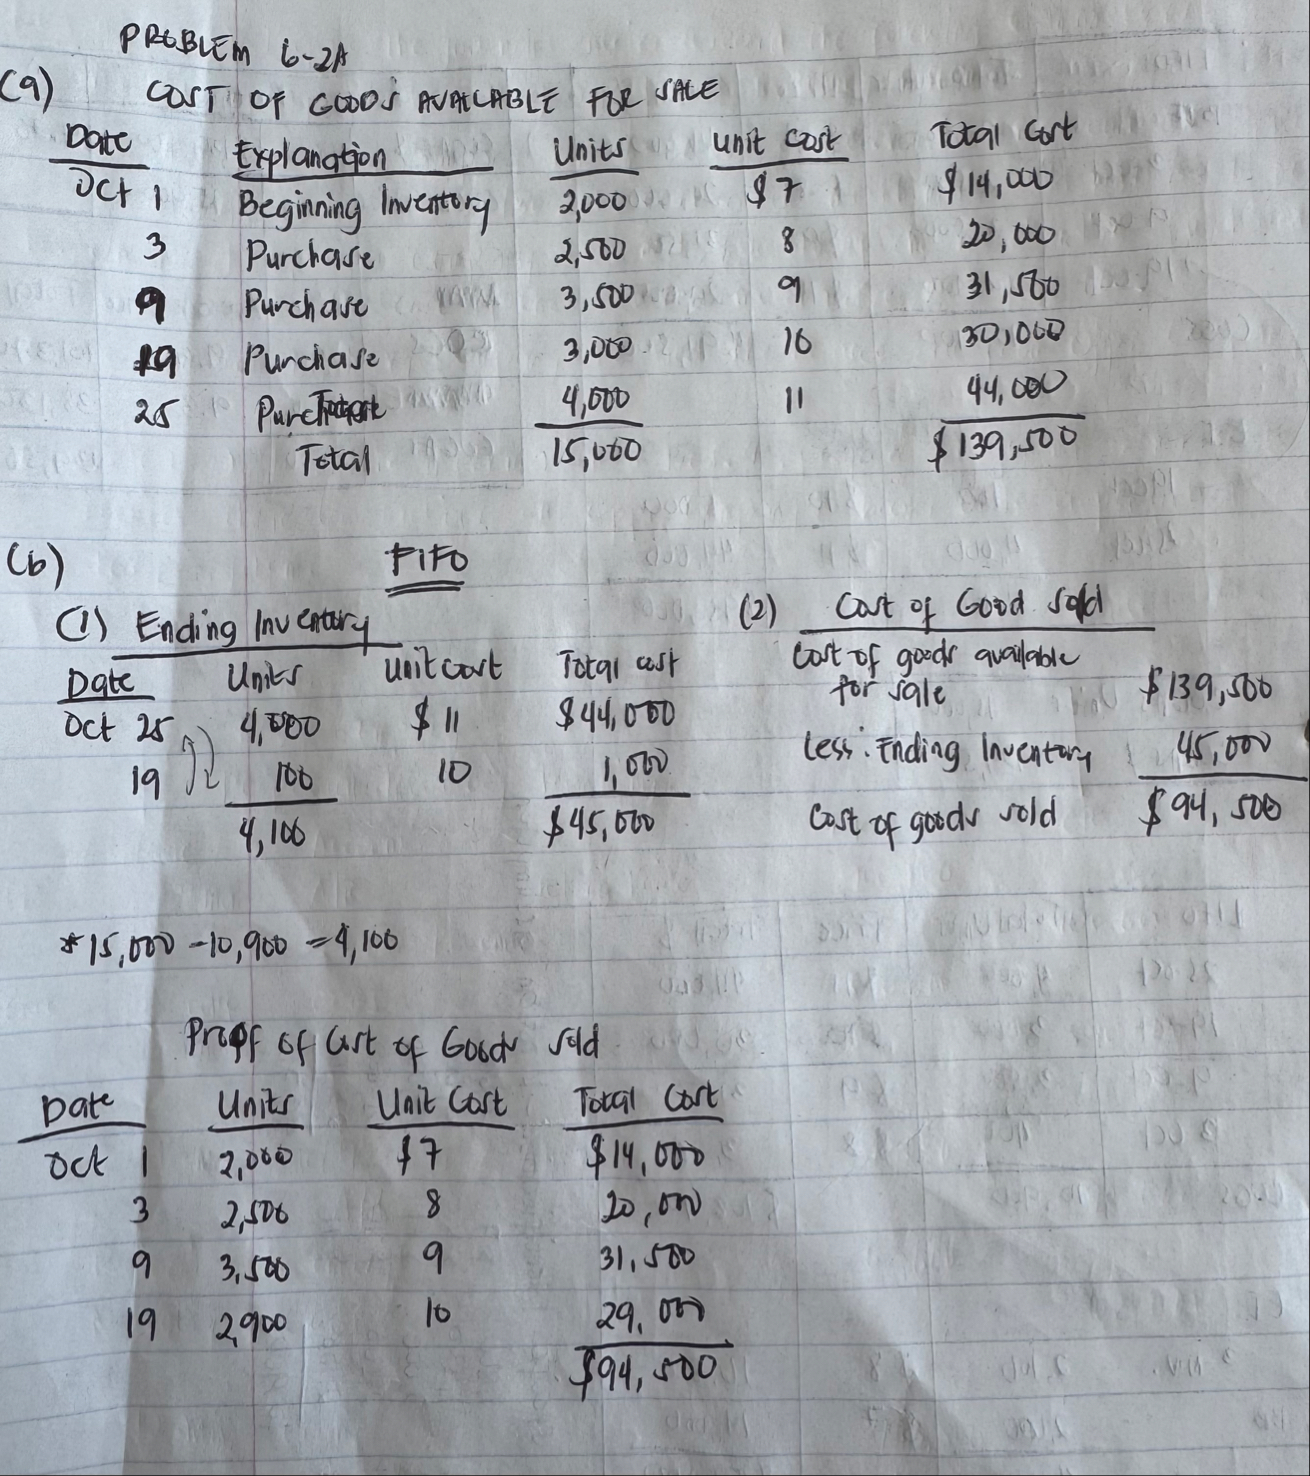 PROBLEM 6-2A
(a) COST OF GOODS AVAILABLE FOR SALE
Date Explanation Units unit cost Total Cost
Oct 1 Beginning Inventory 2,000 $7 $14,000
3 Purchase 2,500 8 20,000
9 Purchase 3,500 9 31,500
19 Purchase 3,000 10 30,000
25 Purchase 4,000 11 44,000
Total 15,000 $139,500
(b) FIFO
(1) Ending Inventory
Date Units Unit cost Total cost
Oct 25 4,000 $11 $44,000
19 100 10 1,000
4,100 $45,000
(2) Cost of Good Sold
Cost of goods available
for sale $139,500
Less: Ending Inventory 45,000
Cost of goods sold $94,500
*15,000 - 10,900 = 4,100
Proof of Cost of Goods Sold
Date Units Unit Cost Total Cost
Oct 1 2,000 $7 $14,000
3 2,500 8 20,000
9 3,500 9 31,500
19 2,900 10 29,000
$94,500